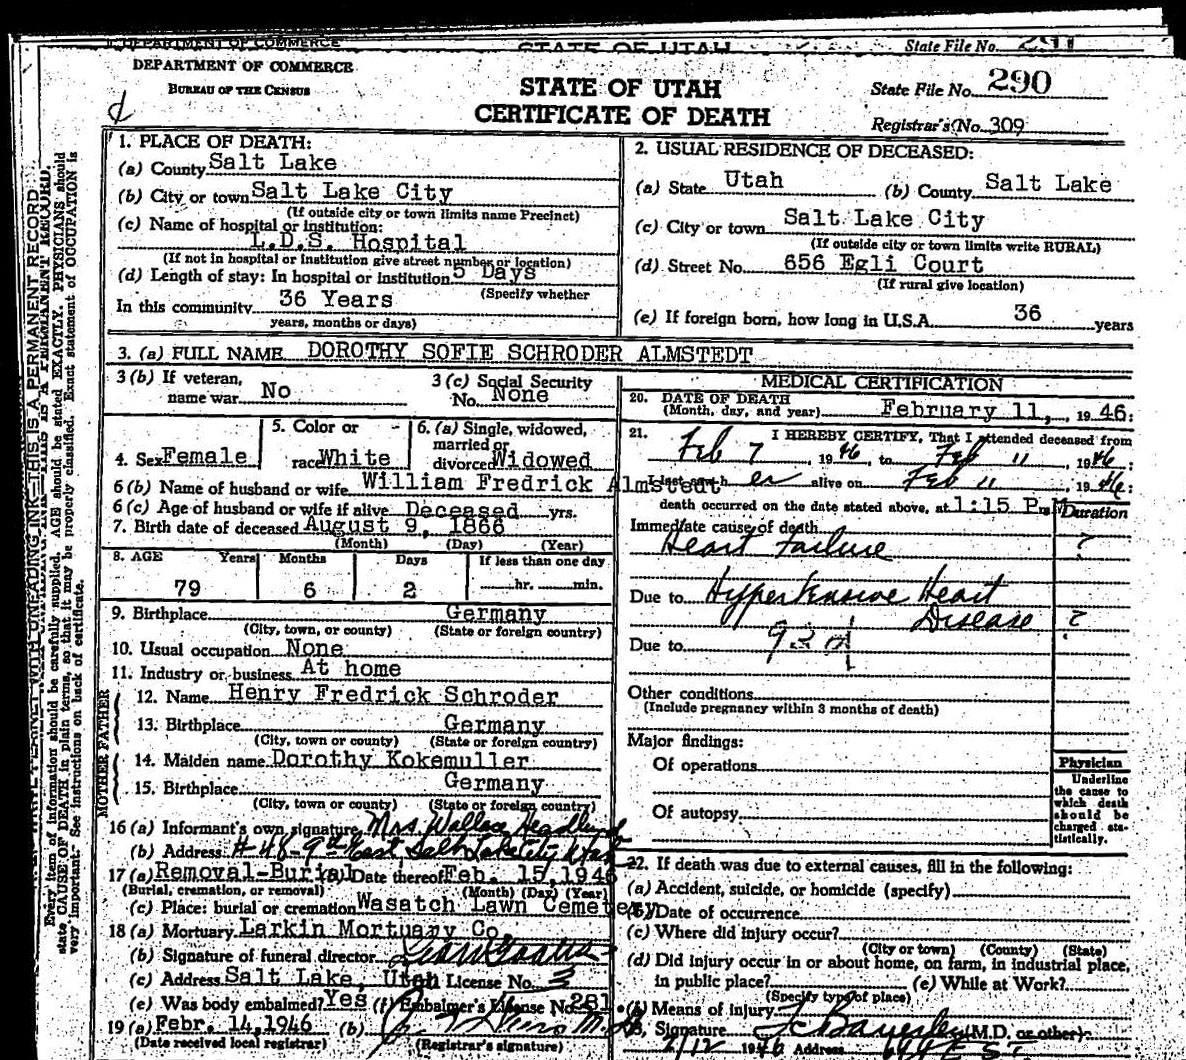 DEPARTMENT OF COMMERCE
STATE OF UTAH
State File No. 291
DEPARTMENT OF COMMERCE
BUREAU OF THE CENSUS
STATE OF UTAH
CERTIFICATE OF DEATH
State File No. 290
Registrar's No. 309
1. PLACE OF DEATH:
(a) County Salt Lake
(b) City or town Salt Lake City
(If outside city or town limits name Precinct)
(c) Name of hospital or institution:
L.D.S. Hospital
(If not in hospital or institution give street number or location)
(d) Length of stay: In hospital or institution 5 Days
(Specify whether
In this community 36 Years
years, months or days)
2. USUAL RESIDENCE OF DECEASED:
(a) State Utah (b) County Salt Lake
(c) City or town Salt Lake City
(If outside city or town limits write RURAL)
(d) Street No. 656 Egli Court
(If rural give location)
(e) If foreign born, how long in U.S.A. 36 years
3. (a) FULL NAME DOROTHY SOFIE SCHRODER ALMSTEDT
3 (b) If veteran, name war No
3 (c) Social Security No. None
4. Sex Female
5. Color or race White
6. (a) Single, widowed, married or divorced Widowed
6 (b) Name of husband or wife William Fredrick Almstedt
6 (c) Age of husband or wife if alive Deceased yrs.
7. Birth date of deceased August 9, 1866
(Month) (Day) (Year)
8. AGE Years Months Days If less than one day
79 6 2 hr. min.
9. Birthplace Germany
(City, town, or county) (State or foreign country)
10. Usual occupation None
11. Industry or business At home
FATHER
12. Name Henry Fredrick Schroder
13. Birthplace Germany
(City, town or county) (State or foreign country)
MOTHER
14. Maiden name Dorothy Kokemuller
15. Birthplace Germany
(City, town or county) (State or foreign country)
16 (a) Informant's own signature Mrs. Wallace Headlund
(b) Address #48-9th East, Salt Lake City Utah
17 (a) Removal-Burial (b) Date thereof Feb. 15, 1946
(Burial, cremation, or removal) (Month) (Day) (Year)
(c) Place: burial or cremation Wasatch Lawn Cemetery
18 (a) Mortuary Larkin Mortuary Co.
(b) Signature of funeral director
(c) Address Salt Lake, Utah License No. 3
(e) Was body embalmed? Yes (f) Embalmer's License No. 281
19 (a) Febr. 14, 1946 (b)
(Date received local registrar) (Registrar's signature)
MEDICAL CERTIFICATION
20. DATE OF DEATH
(Month, day, and year) February 11, 1946:
21. I HEREBY CERTIFY, That I attended deceased from
Feb 7, 1946, to Feb 11, 1946:
I last saw h er alive on Feb 11, 1946:
death occurred on the date stated above, at 1:15 P.m. Duration
Immediate cause of death
Heart Failure ?
Due to Hypertensive Heart
Disease ?
Due to 93d
Other conditions
(Include pregnancy within 3 months of death)
Major findings:
Of operations
Of autopsy
Physician
Underline
the cause to
which death
should be
charged sta-
tistically.
22. If death was due to external causes, fill in the following:
(a) Accident, suicide, or homicide (specify)
(b) Date of occurrence
(c) Where did injury occur?
(City or town) (County) (State)
(d) Did injury occur in or about home, on farm, in industrial place,
in public place? (e) While at Work?
(Specify type of place)
(f) Means of injury
23. Signature (M.D. or other)
2/12 1946 Address
WRITE PLAINLY WITH UNFADING INK—THIS IS A PERMANENT RECORD.
Every item of information should be carefully supplied. AGE should be stated EXACTLY. PHYSICIANS should
state CAUSE OF DEATH in plain terms, so that it may be properly classified. Exact statement of OCCUPATION is
very important. See instructions on back of certificate.